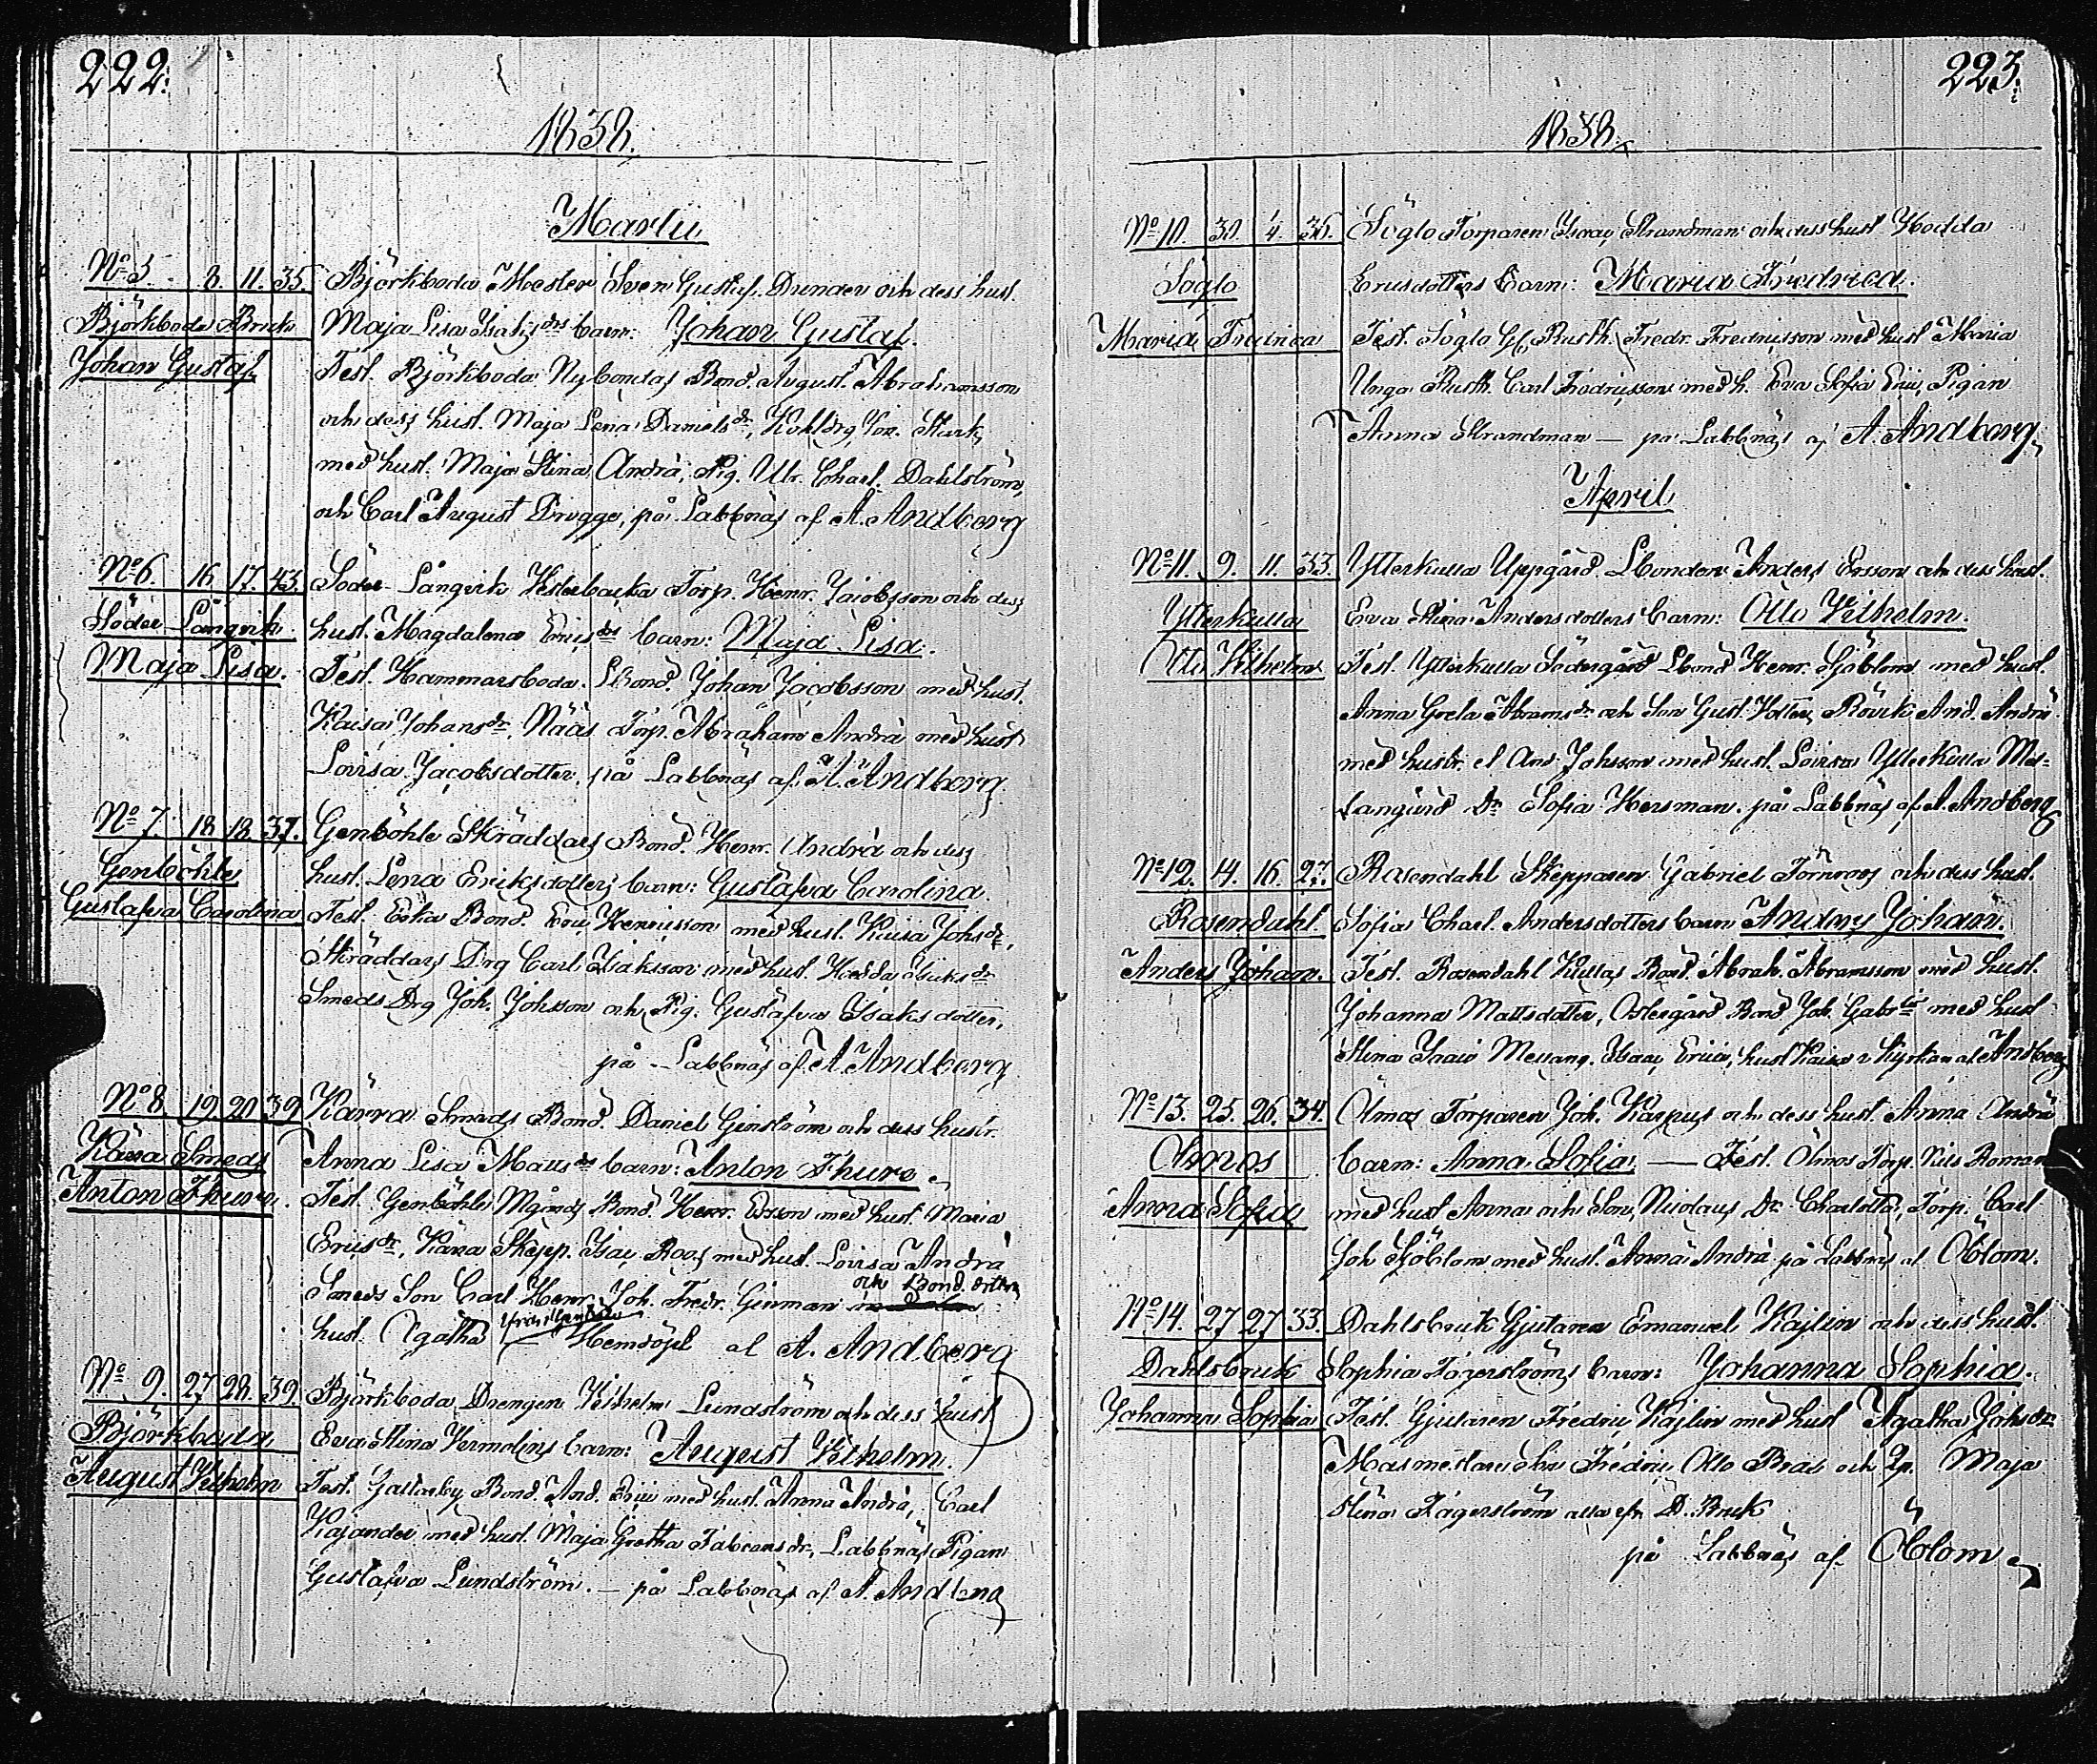 222.
1838.
Martii
No 5. 8. 11. 35. Björkboda Mäster Sven Gustaf Dunder och dess hust.
Björkboda Bruk Maja Lisa Isaksdrs barn: Johan Gustaf.
Johan Gustaf Test. Björkboda Nybondas Bond. August Abrahamsson
och dess hust. Maja Lena Danielsdr, Kohldrg Joh. Stark,
med hust. Maja Stina Andrä, Pig. Ulr. Charl. Dahlström,
och Carl August Brugge, på Labbnäs af A. Andberg
No 6. 16. 17. 43. Söder Långvik Westerbacka Torp. Henr. Jacobsson och dess
Söder Långvik hust. Magdalena Ericsdrs barn: Maja Lisa.
Maja Lisa. Test. Hammarsboda Lbond. Johan Jacobsson med hust.
Kaisa Johansdr, Nääs Torp. Abraham Andrä med hust
Lovisa Jacobsdotter, på Labbnäs af A. Andberg
No 7. 18. 18. 37. Genböhle Skräddars Bond. Henr. Andrä och dess
Genböhle hust. Lena Eriksdotters barn: Gustafva Carolina.
Gustafva Carolina Test. Eska Bond. Eric Henricsson med hust. Kaisa Johsdr,
Skräddars Drg Carl Isaksson med hust. Hedda
Smeds Drg Joh. Johsson och Pig. Gustafva Isaksdotter,
på Labbnäs af A. Andberg
No 8. 19. 20. 39. Kärra Smeds Bond. Daniel Genström och dess hustr.
Kärra Smeds Anna Lisa Mattsdrs barn: Anton Thure
Anton Thure. Test. Genböhle Mgårds Bond. Henr. Ersson med hust. Maria
Ericsdr, Kärra Skepp. Isac Roos med hust. Lovisa Andrä
och Bond. dottren
Smeds Son Carl Henr. Joh. Fredr. Genman
hust. Agatha Hemdöpt af A. Andberg
No 9. 27. 28. 39. Björkboda Drengen Wilhelm Lundström och dess hust
Björkboda Eva Stina Vermelins barn: August Wilhelm.
August Wilhelm Test. Galtarby Bond. And. Eric med hust. Anna Andrä, Carl
Kajander med hust. Maja Gretha Fabiansdr, Labbnäs Pigan
Gustafva Lundström. — på Labbnäs af A. Andberg
223.
1838.
No 10. 30. 4. 36. Söglo Torparen Isaac Strandman och dess hust Hedda
Söglo Ericsdotters barn: Maria Fredrica.
Maria Fredrica Test. Söglo Gl. Rusth. Fredr. Fredricsson med hust Maria
Unga Rusth. Carl Fredricsson med h. Eva Sofia Eric, Pigan
Anna Strandman — på Labbnäs af A. Andberg
April
No 11. 9. 11. 33. Ytterkulla Uppgård Lbonden Anders Ersson och dess hust.
Ytterkulla Eva Stina Andersdotters barn: Otto Wilhelm.
Otto Wilhelm Test. Ytterkulla Södergård Lbond Henr. Sjöblom med hust.
Anna Greta Abramsdr och Son Gust. Rövik And. Andrä
med hustr. et And Johsson med hust. Lovisa Ytterkulla Mel-
langård Dr Sofia Hersman. på Labbnäs af A. Andberg
No 12. 14. 16. 27. Rosendahl Skepparen Gabriel Törnroos och dess hust.
Rosendahl. Sofia Charl. Andersdotters barn Anders Johan.
Anders Johan. Test. Rosendahl Kullas Bond. Abrah. Abramsson med hust.
Johanna Mattsdotter, Östergård Bond Joh. Gabr med hust
Stina Isacs Mellang. Isaac Erics, hust Kaisa i Kyrkan af Andberg
No 13. 25. 26. 34. Ölmos Torparen Joh. Karpus och dess hust Anna Andrä
Ölmos barn: Anna Sofia. — Test. Ölmos Torp. Nils Roman
Anna Sofia med hust Anna och Son Nicolaus Dr Charlotta, Torp. Carl
Joh Sjöblom med hust. Anna Andrä på Labbnäs af Öblom.
No 14. 27. 27. 33. Dahlsbruk Gjutaren Emanuel Kajlin och dess hust.
Dahlsbruk Sophia Fagerströms barn: Johanna Sophia.
Johanna Sophia Test. Gjutaren Fredric Kajlin med hust Agatha Johsdr
Masmästare Son Fredric Otto Bras och Jgr. Maja
Stina Fagerström alla fr. D. Bruk
på Labbnäs af Öblom